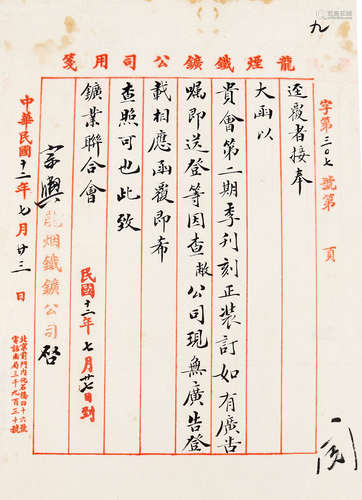 九
龍煙鐵鑛公司用箋
字第二〇七號第　頁
逕覆者接奉
大函以
貴會第二期季刊刻正裝訂如有廣告
囑即送登等因查敝公司現無廣告登
載相應函覆即希
查照可也此致
鑛業聯合會
民國十二年七月廿七日到
龍烟鐵鑛公司啓
中華民國十二年七月廿三日
北京前門內化石橋四十六號
電話南局三千九百三十號
閱